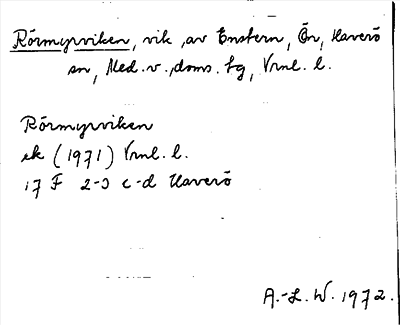 Rörmyrviken, vik av Enstern, Ön, Haverö
sn, Med. v. doms. tg, Vrnl. l.
Rörmyrviken
ek (1971) Vrnl. l.
17 F 2-3 c-d Haverö
A.-L. W. 1972.